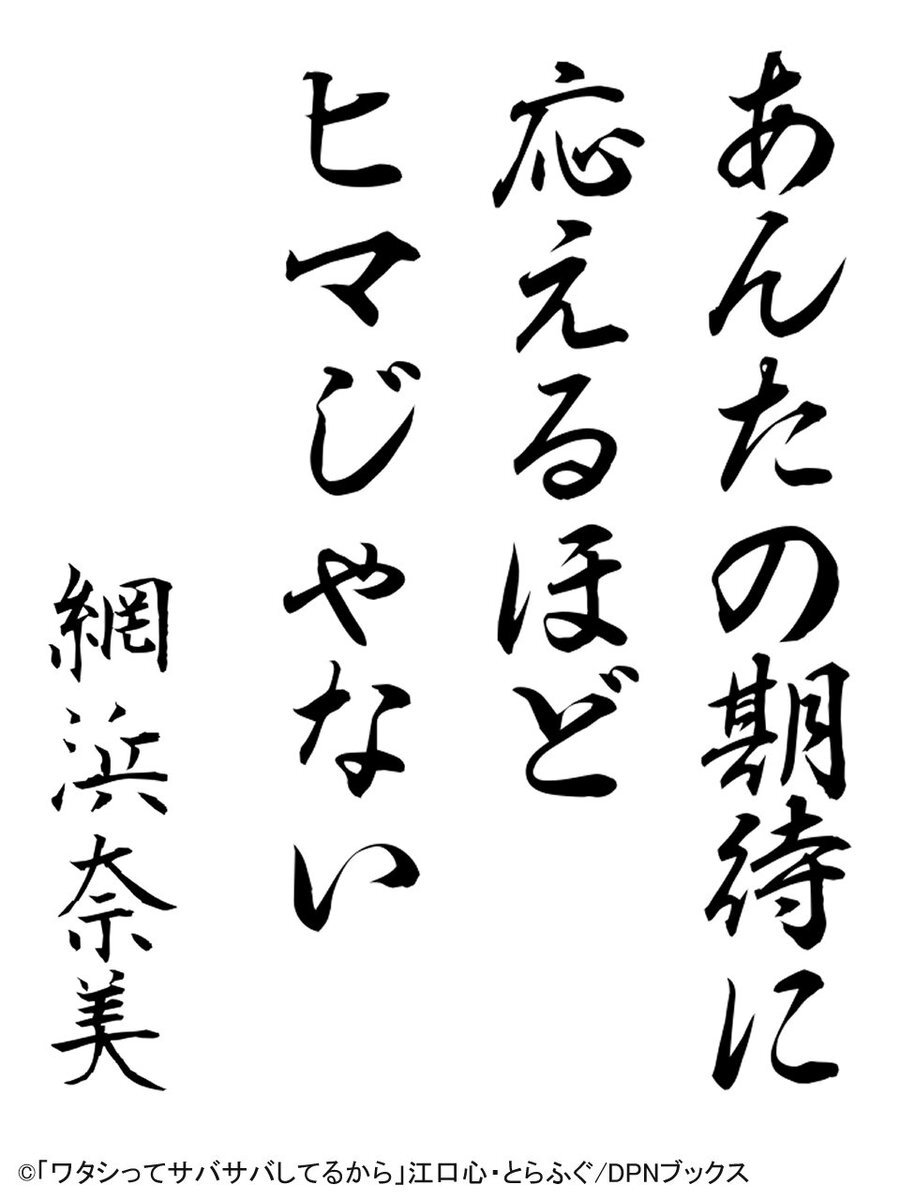 あんたの期待に
応えるほど
ヒマじゃない
網浜奈美
©「ワタシってサバサバしてるから」江口心・とらふぐ/DPNブックス